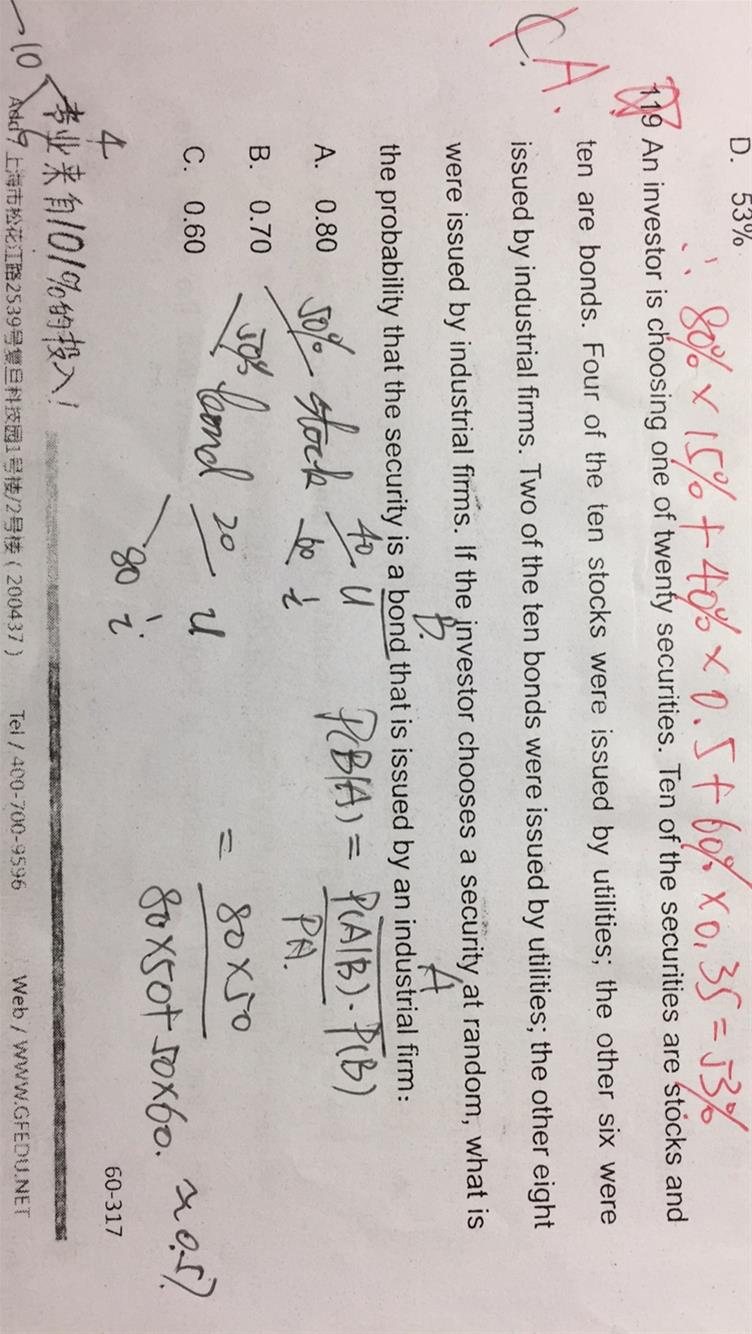 D. 53%
∴ 80% × 15% + 40% × 0.5 + 60% × 0.35 = 53%
119 An investor is choosing one of twenty securities. Ten of the securities are stocks and
C. A.
ten are bonds. Four of the ten stocks were issued by utilities; the other six were
issued by industrial firms. Two of the ten bonds were issued by utilities; the other eight
were issued by industrial firms. If the investor chooses a security at random, what is
B. A
the probability that the security is a bond that is issued by an industrial firm:
A. 0.80
B. 0.70
C. 0.60
50% stock 40 U
60 i
50% bond 20 u
80 i
P(B|A) = P(A|B)·P(B)
PA.
= 80×50
80×50+50×60. ≈0.57
60-317
4
专业来自101%的投入!
→10
9
Add / 上海市松花江路2539号复旦科技园1号楼/2号楼 ( 200437 ) Tel / 400-700-9596 Web / WWW.GFEDU.NET